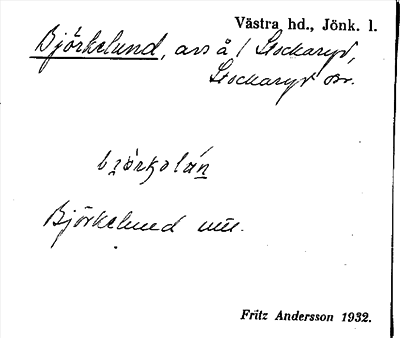 Västra hd., Jönk. l.
Björkelund, avs å 1 Stockaryd,
Stockaryds sn.
Björkelund
Fritz Andersson 1932.